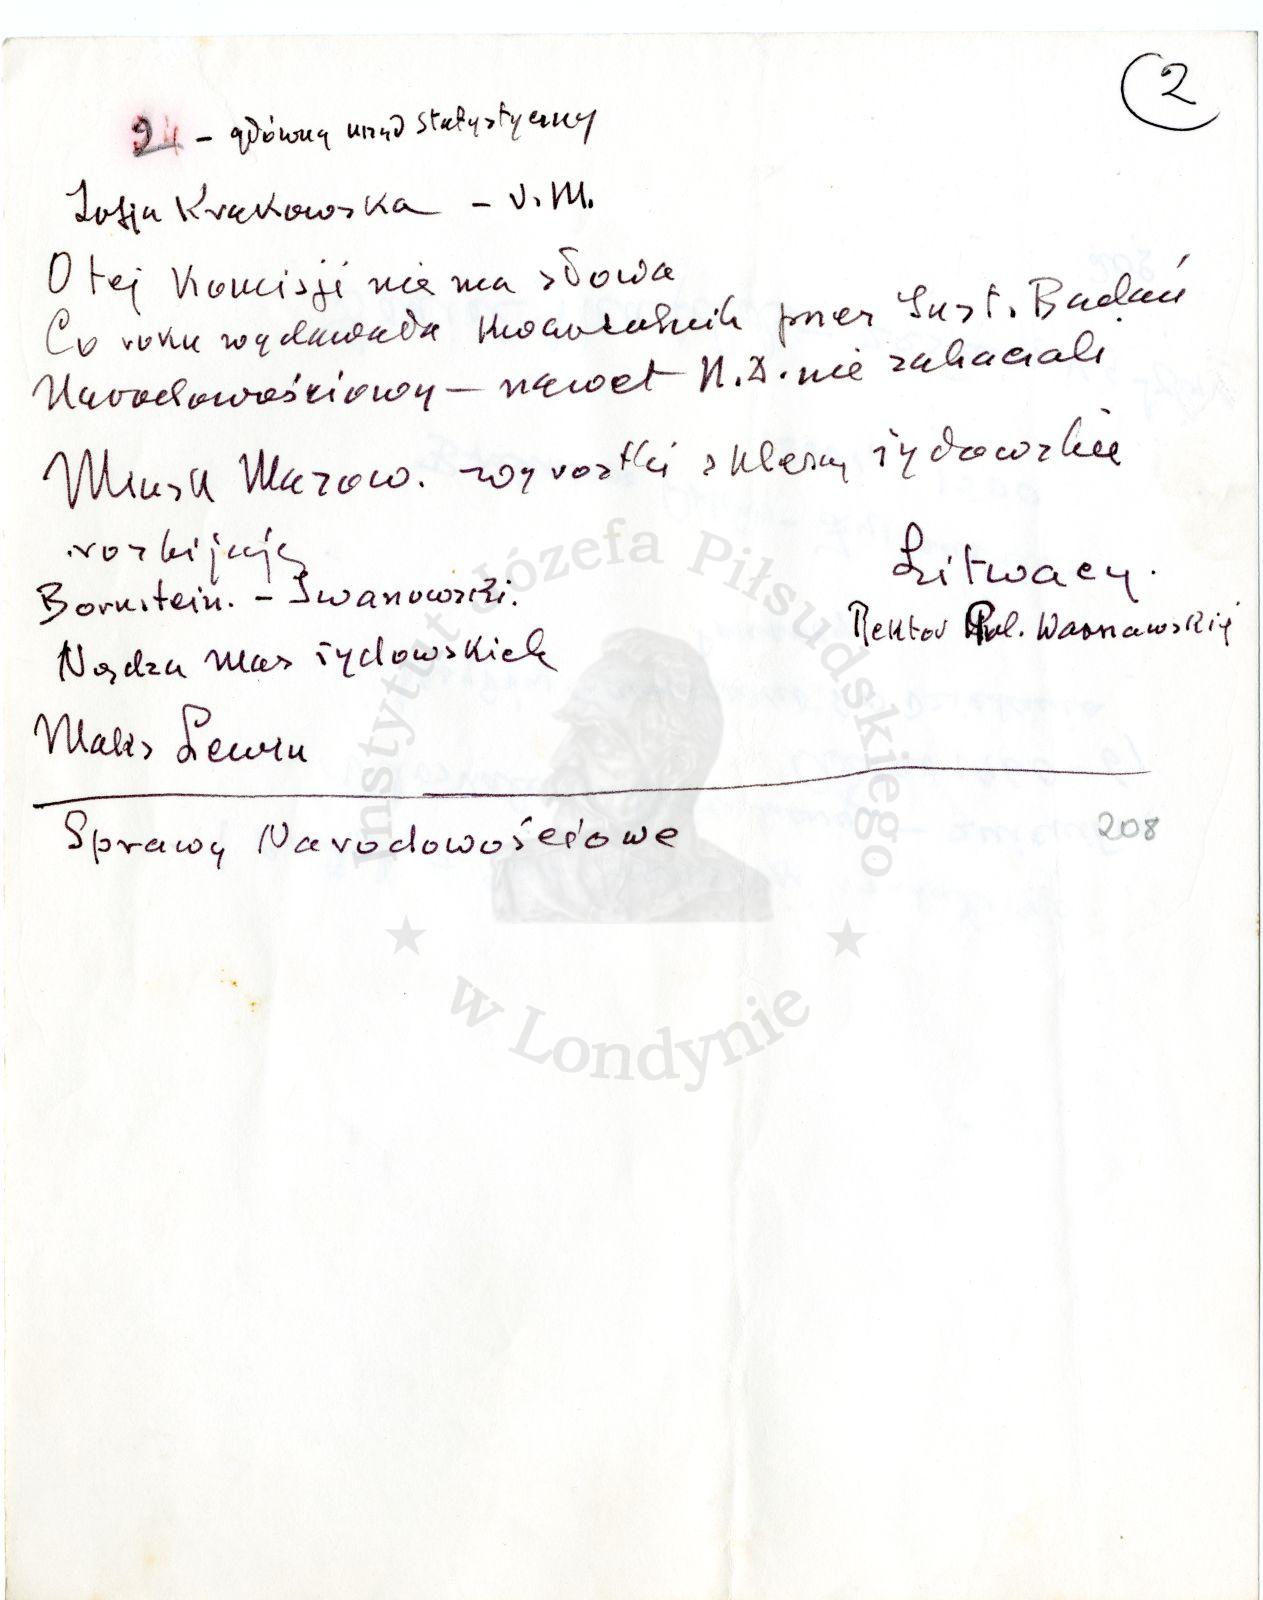 2
24 – główny urząd statystyczny
Zofja Krakowska – V.M.
O tej Komisji nie ma słowa
Co roku wydawała przez Inst. Badań
Narodowościowy – nawet N.D. nie zahaczali
Mińsk Mazow. wyrostki sklepy żydowskie
rozbijają
Litwacy.
Bornstein. – Iwanowski.
Rektor Pol. Warszawskiej
Nędza mas żydowskich
Maks Lewin
Sprawy Narodowościowe
208
Instytut Józefa Piłsudskiego
w Londynie